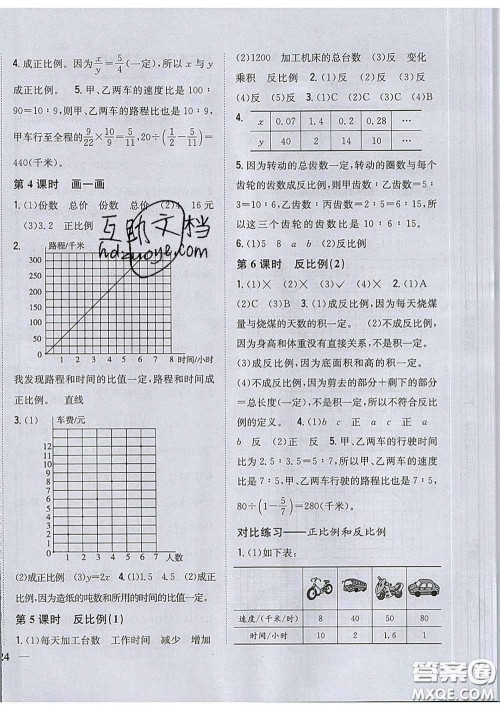 4.成正比例。因为x/y=5/4(一定),所以x与y
成正比例。5.甲、乙两车的速度比是100∶
90=10∶9,甲、乙两车的路程比也是10∶9,
甲车行至全程的9/22×10/9=5/11,20÷(1/2-5/11)=
440(千米)。
第4课时 画一画
1.(1)份数 总价 份数 总价 (2)4 16元
(3)3.2 正比例
2.
路程/千米
300
250
200
150
100
50
0 1 2 3 4 5 6 7 8 时间/小时
我发现路程和时间的比值一定,路程和时间成
正比例。 直线
3.(1)
车费/元
14
13
12
11
10
9
8
7
6
5
4
3
2
1
0 1 2 3 4 5 6 7 人数
(2)成正比例 (3)y=2x 4.(1)1.5 4.5 (2)成正比例,
因为造纸的吨数和所用的时间的比值一定。
第5课时 反比例(1)
1.(1)每天加工台数 工作时间 减少 增加
24
(2)1200 加工机床的总台数 (3)反 变化
乘积 反比例
(4)反 (5)反
(3)C (4)B
4.
x 0.07 0.2 1.4 2.8 …
y 40 14 2 1 …
5.因为转动的总齿数一定,转动的圈数与每个
齿轮的齿数成反比例,则甲齿数∶乙齿数=
所以这三个齿轮的齿数比为10∶6∶9。
6.(1)5 8 a b (2)反
第6课时 反比例(2)
1.(1)× (2)× (3)✓ (4)×
(2)成反比例,因为每天烧煤
量与烧煤的天数的积一定。(2)不成反比例,
因为身高和体重没有直接关系。(3)成反比
例,因为底面积和高的积一定。
(4)不成反比例,剪去的部分+剩下的部分
=总长度(一定),不符合反比例的定义。
反
6.甲、乙两车的行驶时间
比为2.5∶3.5=5∶7,所以甲、乙两车的速度
比是7∶5,则甲、乙两车行驶的路程比也是7∶5,
80÷(1-5/7)=280(千米)。
对比练习——正比例和反比例
1.(1)如下表:
速度/(千米/时) 8 40 50 80
时间/小时 10 2 1.6 1
互助文档
hdzuoye.com
答案圈
MXQE.COM